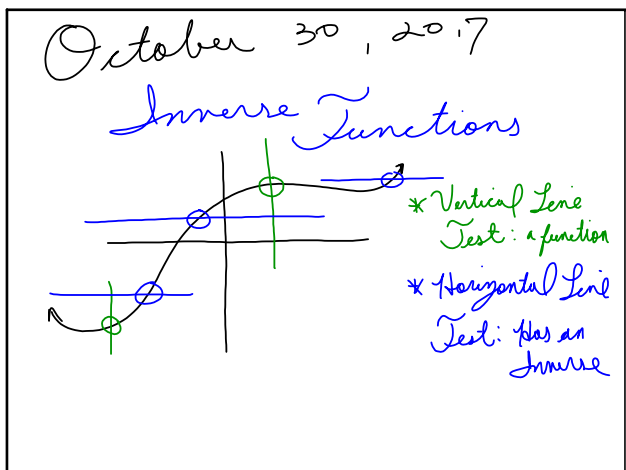 October 30, 2017
Inverse Functions
* Vertical Line
Test: a function
* Horizontal Line
Test: Has an
Inverse